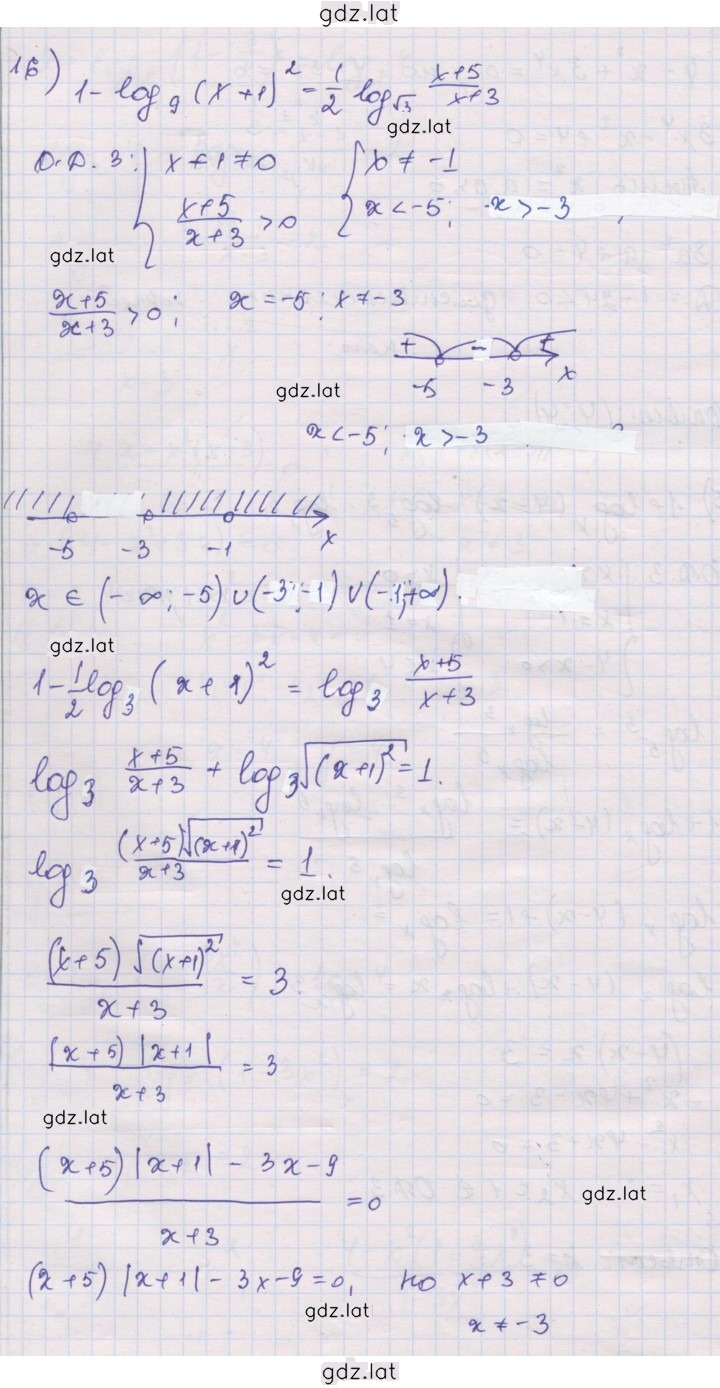 gdz.lat
1б) 1-log₉(x+1)² = 1/2 log_√3 (x+5)/(x+3)
gdz.lat
О.Д.З: { x+1≠0 { x ≠ -1
(x+5)/(x+3) > 0 x < -5; x > -3 ,
gdz.lat
(x+5)/(x+3) > 0; x = -5; x ≠ -3
+ - +
gdz.lat -5 -3 x
x < -5; x > -3
-5 -3 -1 x
x ∈ (-∞; -5) ∪ (-3; -1) ∪ (-1; +∞).
gdz.lat
1 - 1/2 log₃ (x+1)² = log₃ (x+5)/(x+3)
log₃ (x+5)/(x+3) + log₃ √(x+1)² = 1.
log₃ (x+5)√(x+1)²/(x+3) = 1.
gdz.lat
(x+5) √(x+1)²/(x+3) = 3
(x+5) |x+1|/(x+3) = 3
gdz.lat
((x+5) |x+1| - 3x - 9)/(x+3) = 0
gdz.lat
(x+5) |x+1| - 3x - 9 = 0, но x+3 ≠ 0
gdz.lat
x ≠ -3
gdz.lat